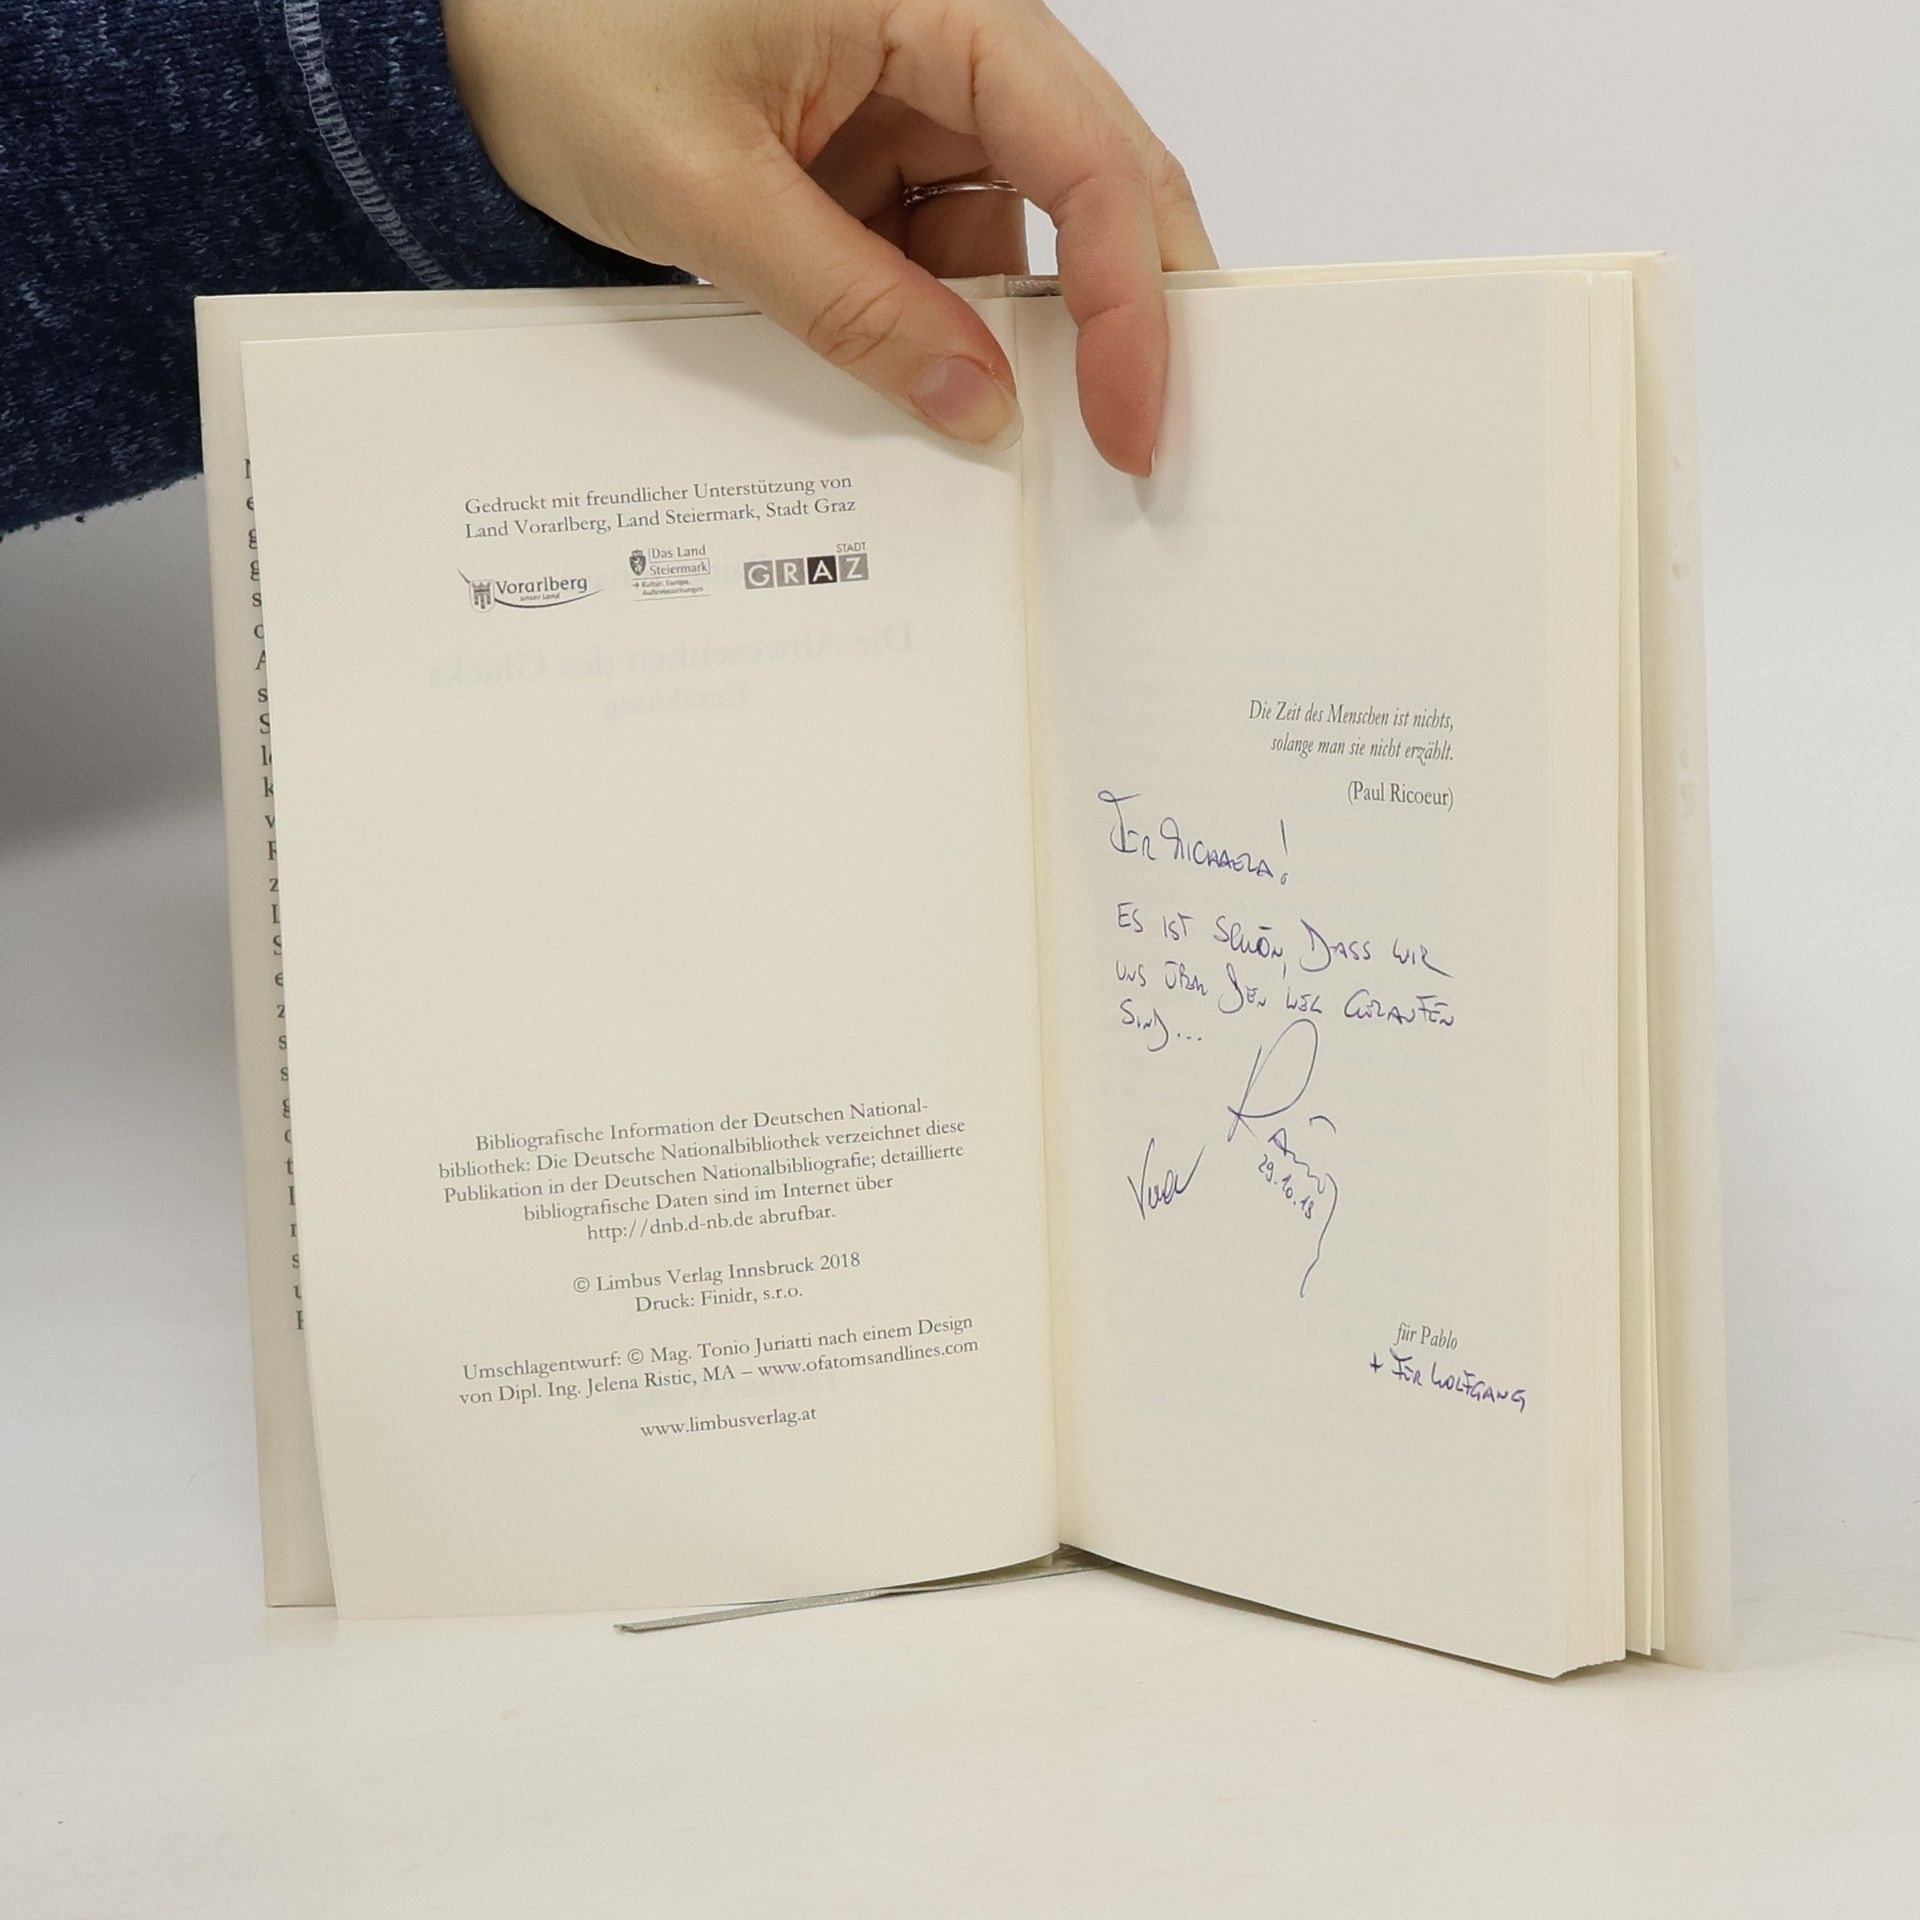 Gedruckt mit freundlicher Unterstützung von
Land Vorarlberg, Land Steiermark, Stadt Graz
Vorarlberg
unser Land
Das Land
Steiermark
→ Kultur, Europa,
Außenbeziehungen
STADT
GRAZ
Die Abwesenheit des Glücks
Erzählung
Bibliografische Information der Deutschen National-
bibliothek: Die Deutsche Nationalbibliothek verzeichnet diese
Publikation in der Deutschen Nationalbibliografie; detaillierte
bibliografische Daten sind im Internet über
http://dnb.d-nb.de abrufbar.
© Limbus Verlag Innsbruck 2018
Druck: Finidr, s.r.o.
Umschlagentwurf: © Mag. Tonio Juriatti nach einem Design
von Dipl. Ing. Jelena Ristic, MA – www.ofatomsandlines.com
www.limbusverlag.at
Die Zeit des Menschen ist nichts,
solange man sie nicht erzählt.
(Paul Ricoeur)
FÜR MICHAELA!
ES IST SCHÖN, DASS WIR
UNS ÜBER DEN WEG GELAUFEN
SIND...
29.10.18
für Pablo
+ FÜR WOLFGANG